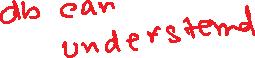 db can
understend